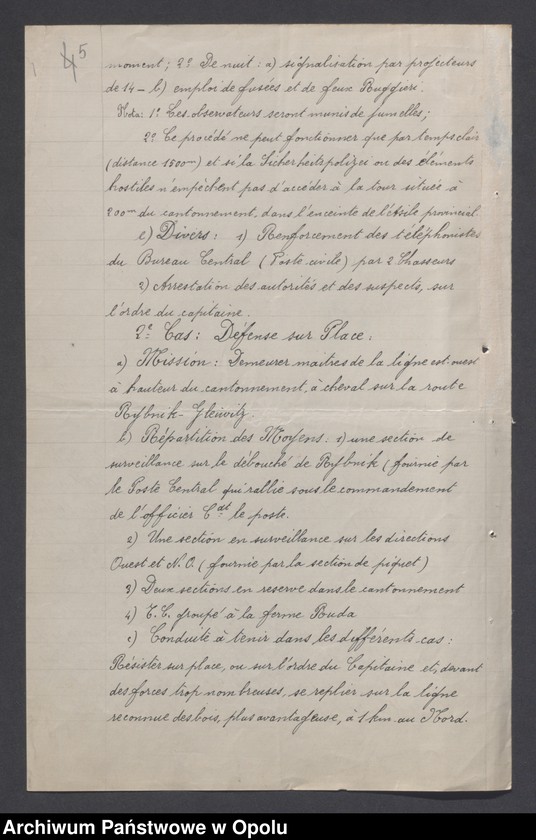 45
moment; 2° De nuit: a) signalisation par projecteurs
de 14 - b) emploi de fusées et de feux Ruggieri.
Nota: 1° Ces observateurs seront munis de jumelles;
2° Ce procédé ne peut fonctionner que par temps clair
(distance 1500m) et si la Sicherheitspolizei ou des éléments
hostiles n'empêchent pas d'accéder à la tour située à
200m du cantonnement, dans l'enceinte de l'Asile provincial.
e) Divers: 1) Renforcement des téléphonistes
du Bureau Central (Poste civile) par 2 Chasseurs
2) Arrestation des autorités et des suspects, sur
l'ordre du capitaine.
2e Cas: Défense sur Place:
a) Mission: Demeurer maîtres de la ligne est-ouest
à hauteur du cantonnement, à cheval sur la route
Rybnik-Gleiwitz.
b) Répartition des Moyens: 1) une section de
surveillance sur le débouché de Rybnik (fournie par
le Poste Central qui rallie sous le commandement
de l'officier Cdt le poste.
2) Une section en surveillance sur les directions
Ouest et N.O. (fournie par la section de piquet)
3) Deux sections en reserve dans le cantonnement
4) T.C. groupé à la ferme Buda
c) Conduite à tenir dans les différents cas:
Résister sur place, ou sur l'ordre du Capitaine et, devant
des forces trop nombreuses, se replier sur la ligne
reconnue des bois, plus avantageuse, à 1 km au Nord.
Archiwum Państwowe w Opolu